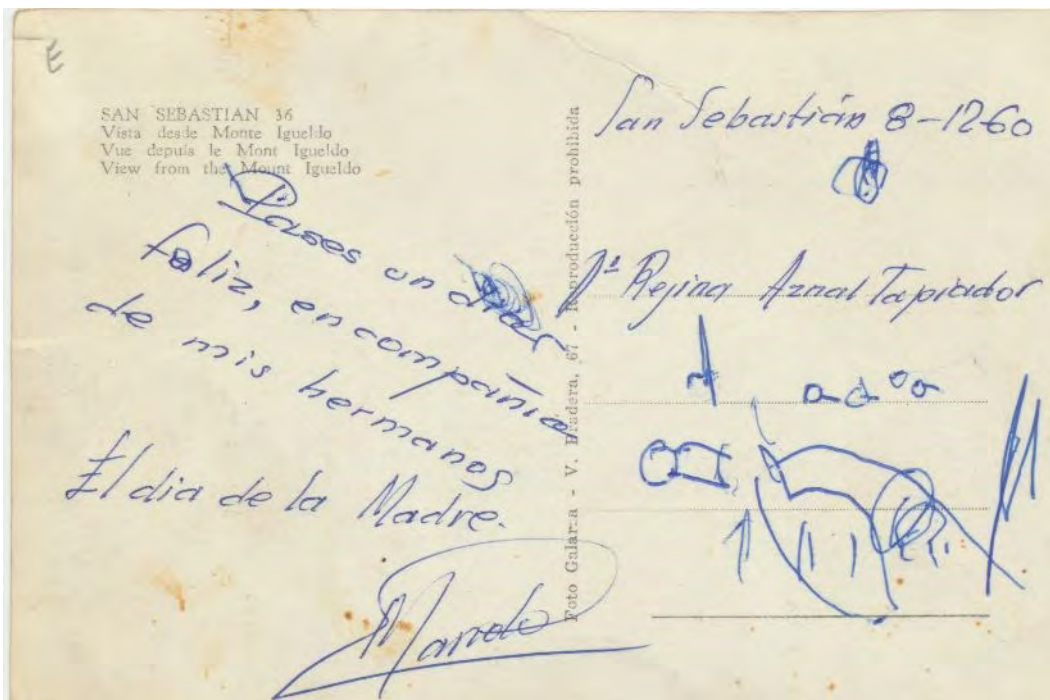 E
SAN SEBASTIAN 36
Vista desde Monte Igueldo
Vue depuis le Mont Igueldo
View from the Mount Igueldo
Pases un dia
feliz, en compañia
de mis hermanos
El dia de la Madre.
Manolo
Foto Galarza - V. Pradera, 67 - Reproducción prohibida
San Sebastián 8-12-60
Rejina Aznal Tapiador